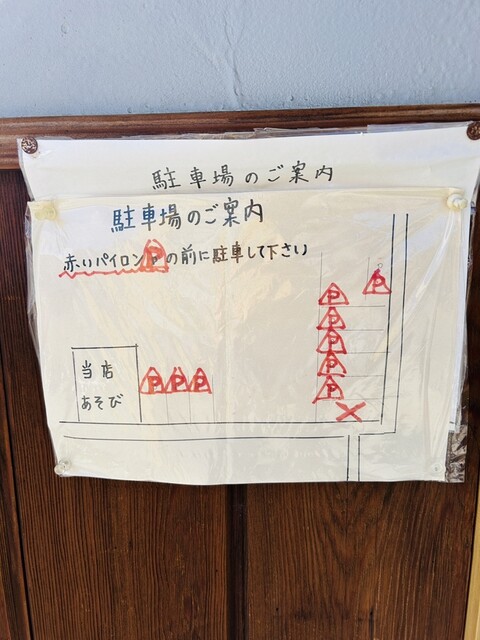 駐車場のご案内
駐車場のご案内
赤いパイロンPの前に駐車して下さい
P
P
P
P
P
P
当店
あそび
P P P